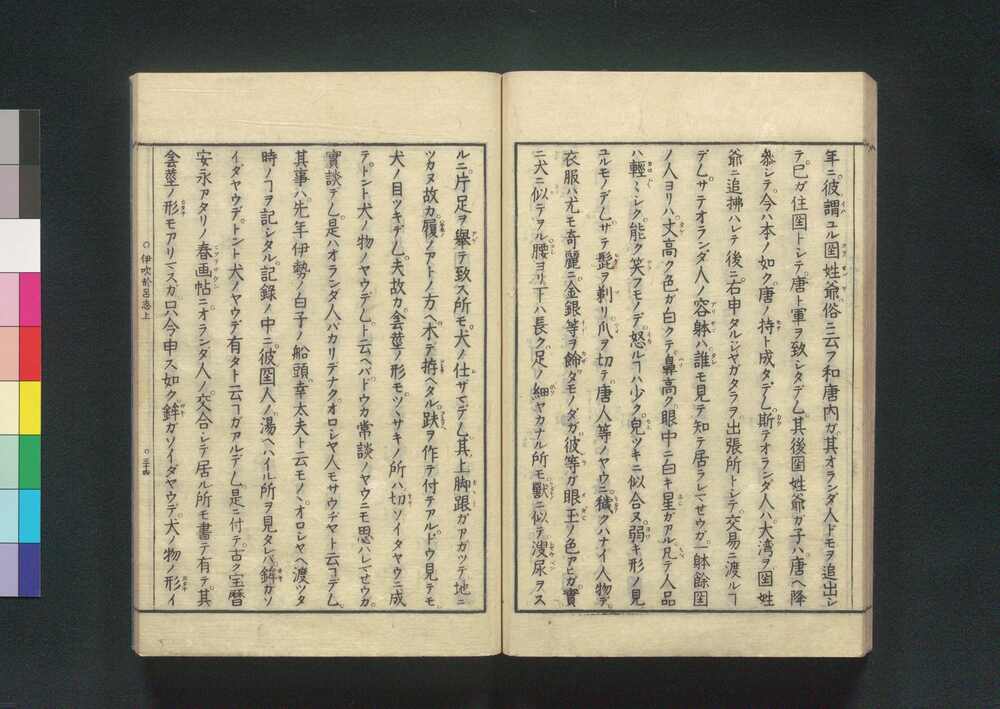 年ニ彼謂ユル囯姓爺俗ニ云フ和唐内ガ其オランダ人ドモヲ追出シ
テ已ガ住囯トシテ唐ト軍ヲ致シタデ𪜈其後囯姓爺ガ子ハ唐ヘ降
参シテ今ハ本ノ如ク唐ノ持ト成タデ𪜈斯テオランダ人ハ大湾ヲ囯姓
爺ニ追拂ハレテ後ニ右申タルジヤガタラヲ出張所トシテ交易ニ渡ルヿ
デ𪜈サテオランダ人ノ容躰ハ誰モ見テ知テ居ラレマセウガ一躰餘囯
ノ人ヨリハ丈高ク色ガ白クテ鼻高ク眼中ニ白キ星ガアル凡テ人品
ハ輕々シク能ク笑フモノデ怒ルヿハ少ク皃ツキニ似合ヌ弱キ形ノ見
ユルモノデ𪜈サテ髭ヲ剃リ爪ヲ切テ唐人等ノヤウニ穢クハナイ人物デ
衣服ハ尤モ奇麗ニ金銀等ヲ飾タモノダガ彼等ガ眼玉ノ色アヒガ實
ニ犬ニ似テヲル腰ヨリ下ハ長ク足ノ細ヤカナル所モ獸ニ似テ溲尿ヲス
ルニ片足ヲ舉テ致ス所モ犬ノ仕ザマデ𪜈其上脚跟ガアガツテ地ニ
ツカヌ故カ履ノアトノ方ヘ木デ拵ヘタル趺ヲ作テ付テアルドウ見テモ
犬ノ目ツキデ𪜈夫故カ陰莖ノ形モツヽサキノ所ハ切ソイタヤウニ成
テドント犬ノ物ノヤウデ𪜈ト云ヘバドウカ常談ノヤウニモ思ハレマセウガ
實談デ𪜈是ハオランダ人バカリデナクオロシヤ人モサウヂヤト云ヿデ𪜈
其事ハ先年伊勢ノ白子ノ船頭幸太夫ト云モノヽオロシヤヘ渡ツタ
時ノヿヲ記シタル記録ノ中ニ彼囯人ノ湯ヘハイル所ヲ見タレバ鉾ガソ
イダヤウデトント犬ノヤウデ有タト云ヿガアルデ𪜈是ニ付テ古ク宝暦
安永アタリノ春画帖ニオランダ人ノ交合シテ居ル所モ書テ有テ其
陰莖ノ形モアリマスガ只今申ス如ク鉾ガソイダヤウデ犬ノ物ノ形イ
○伊吹於呂志上
○三十四